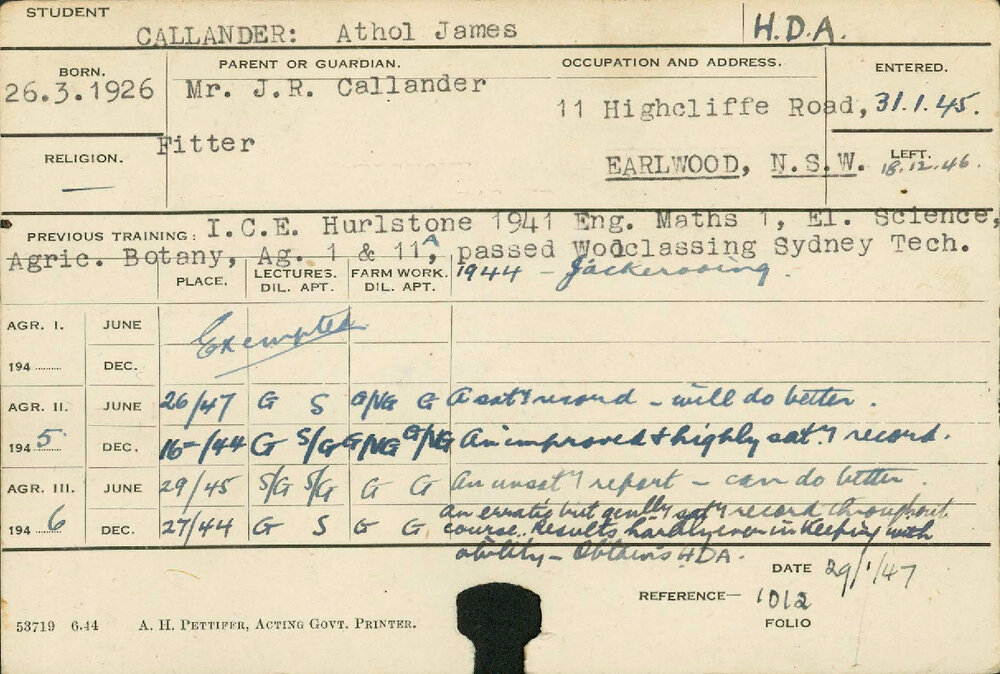 STUDENT
CALLANDER: Athol James H.D.A.
BORN. PARENT OR GUARDIAN. OCCUPATION AND ADDRESS. ENTERED.
26.3.1926 Mr. J.R. Callander 11 Highcliffe Road, 31.1.45.
RELIGION. Fitter EARLWOOD, N.S.W. LEFT. 18.12.46.
—
PREVIOUS TRAINING: I.C.E. Hurlstone 1941 Eng. Maths 1, El. Science,
Agric. Botany, Ag. 1 & 11A, passed Woolclassing Sydney Tech.
PLACE. LECTURES. DIL. APT. FARM WORK. DIL. APT. 1944 - Jackerooing.
AGR. I. JUNE Exempted
194...... DEC.
AGR. II. JUNE 26/47 G S G/NG G A sat'y record - will do better.
1945 DEC. 16-/44 G S/G G/NG G/NG An improved & highly sat'y record.
AGR. III. JUNE 29/45 S/G S/G G G An unsat'y report - can do better.
1946 DEC. 27/44 G S G G An erratic but genlly sat'y record throughout
course. Results hardly even in keeping with
ability - Obtains HDA.
DATE 29/1/47
REFERENCE— 1012
FOLIO
53719 6.44 A. H. PETTIFER, ACTING GOVT. PRINTER.